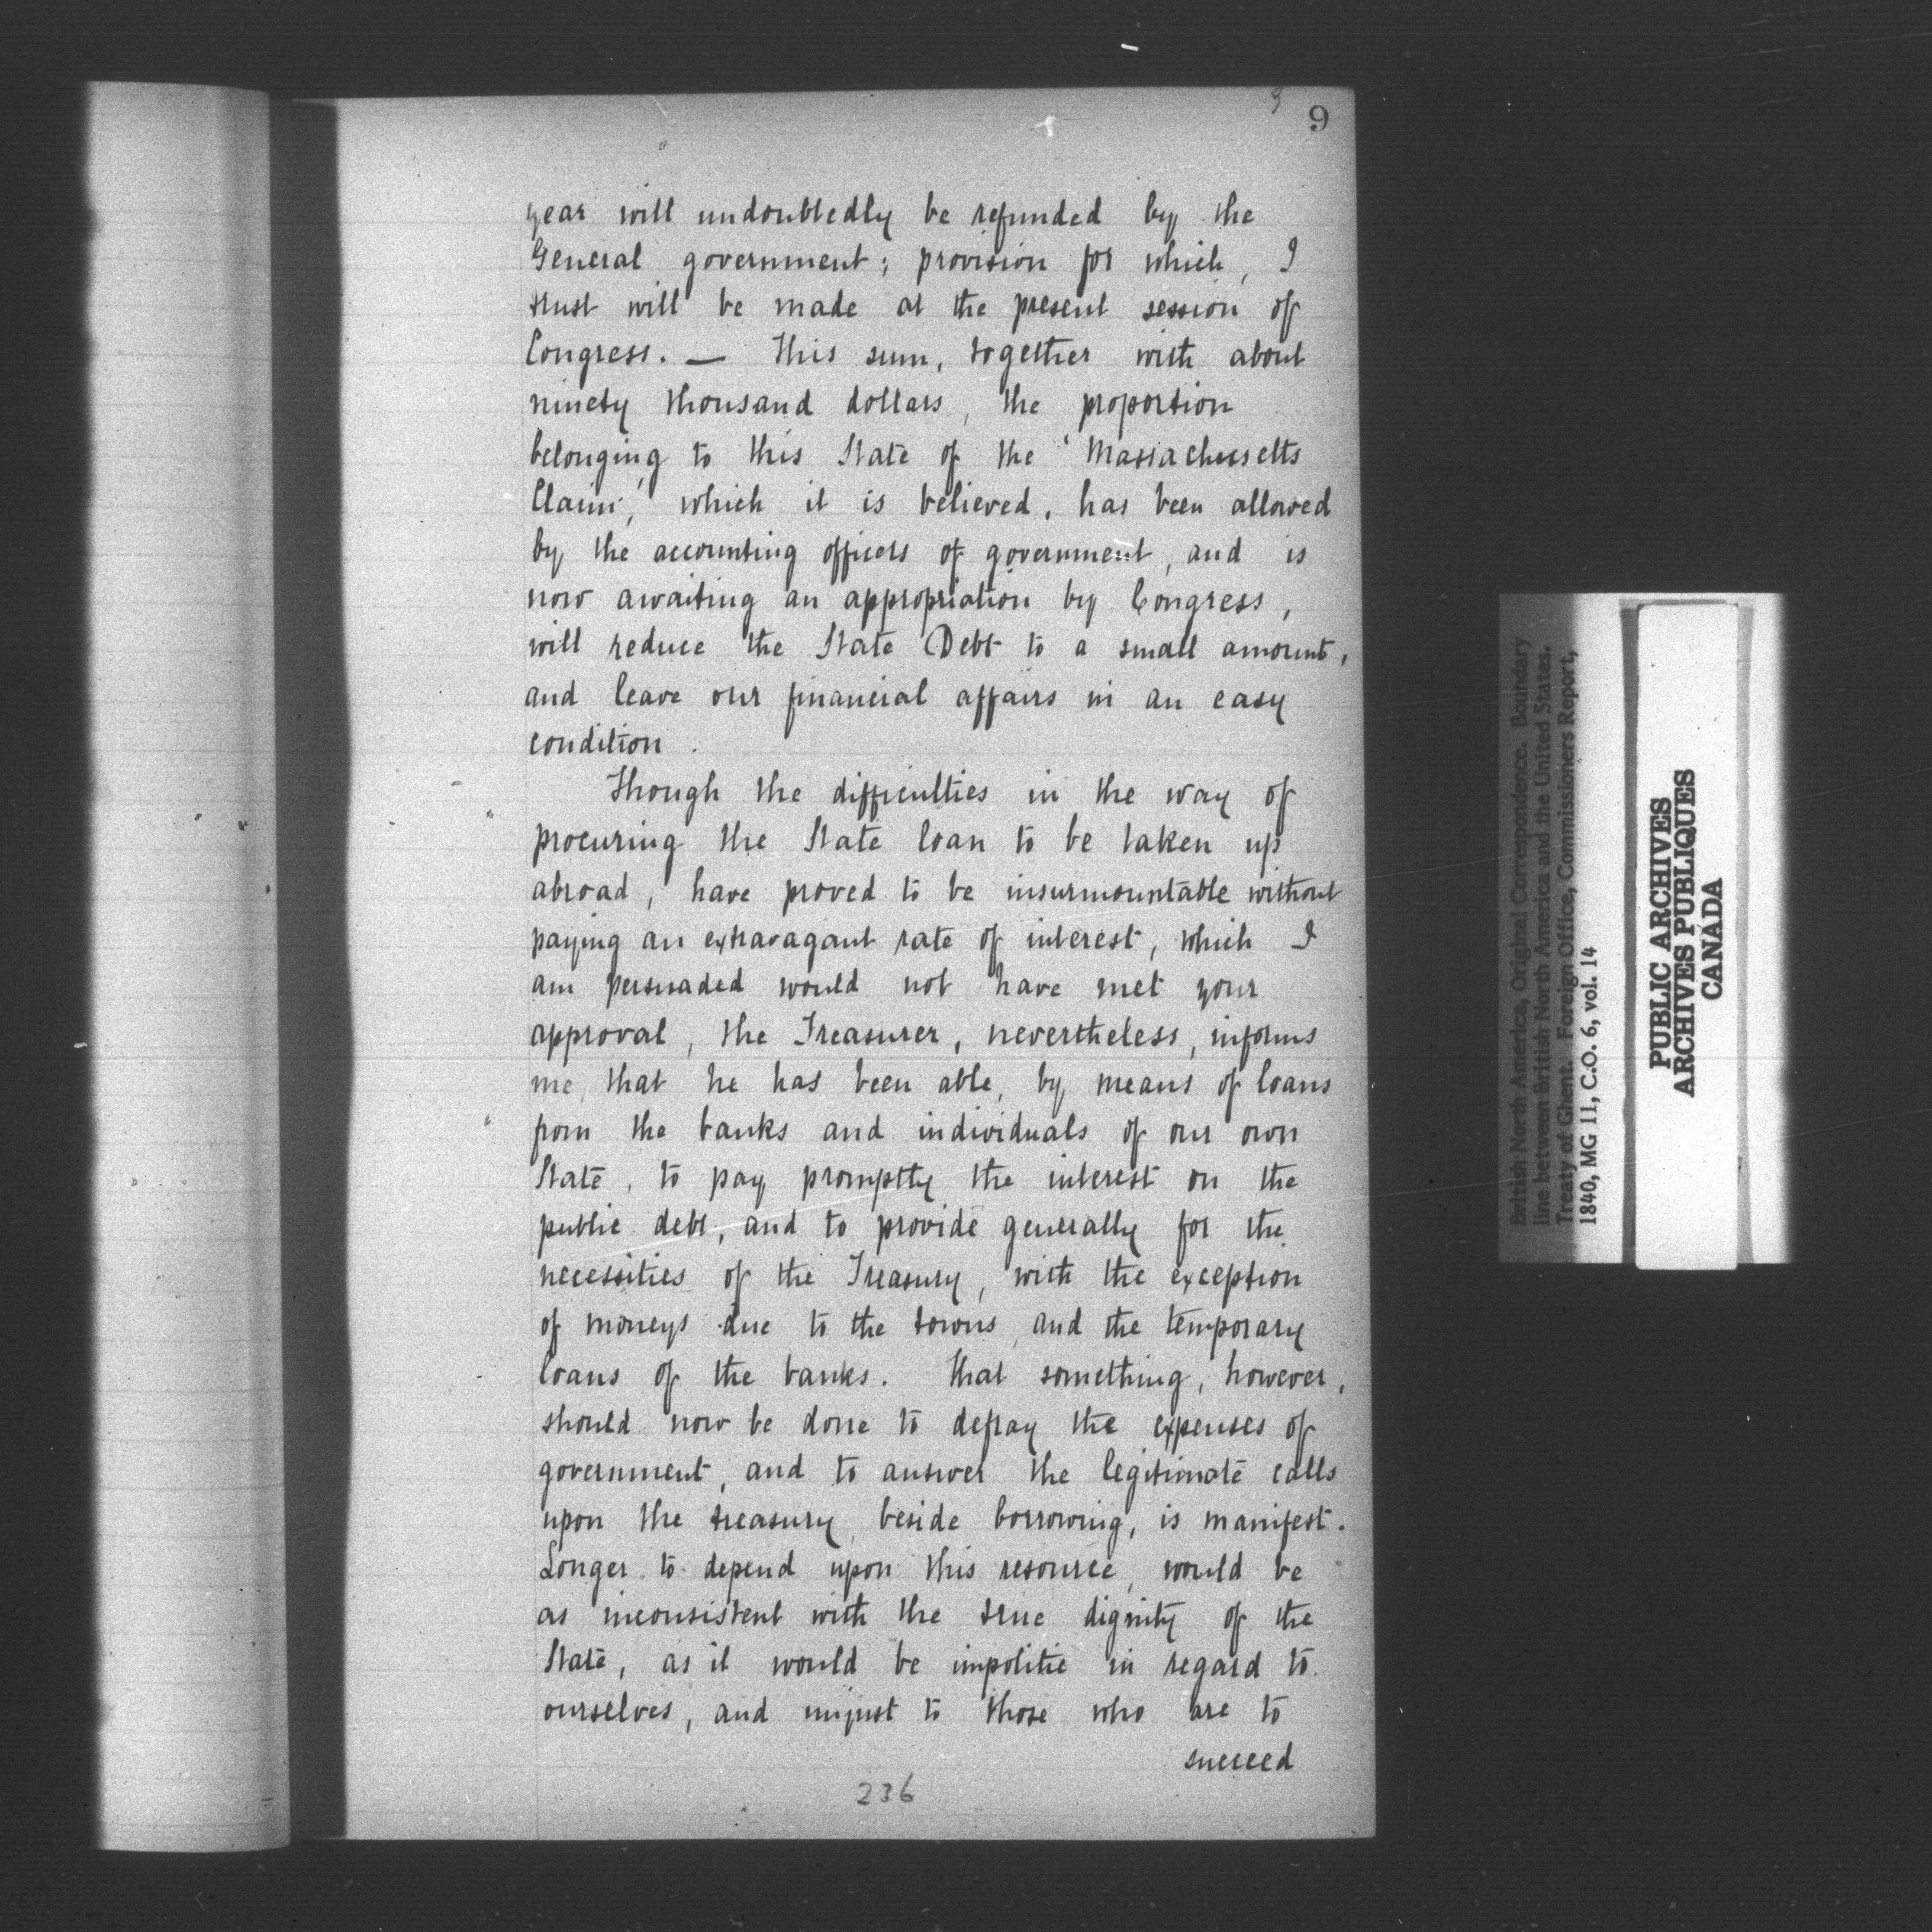 9
year will undoubtedly be refunded by the
General government; provision for which, I
trust will be made at the present session of
Congress. — This sum, together with about
ninety thousand dollars, the proportion
belonging to this State of the 'Massachusetts
Claim,' which it is believed, has been allowed
by the accounting officers of government, and is
now awaiting an appropriation by Congress,
will reduce the State Debt to a small amount,
and leave our financial affairs in an easy
condition.
Though the difficulties in the way of
procuring the State loan to be taken up
abroad, have proved to be insurmountable without
paying an extravagant rate of interest, which I
am persuaded would not have met your
approval, the Treasurer, nevertheless, informs
me, that he has been able, by means of loans
from the banks and individuals of our own
State, to pay promptly the interest on the
public debt, and to provide generally for the
necessities of the Treasury, with the exception
of moneys due to the towns, and the temporary
loans of the banks. That something, however,
should now be done to defray the expenses of
government, and to answer the legitimate calls
upon the treasury, beside borrowing, is manifest.
Longer to depend upon this resource, would be
as inconsistent with the true dignity of the
State, as it would be impolitic in regard to
ourselves, and unjust to those who are to
succeed
236
British North America, Original Correspondence. Boundary
line between British North America and the United States.
Treaty of Ghent. Foreign Office, Commissioners Report,
1840, MG 11, C.O. 6, vol. 14
PUBLIC ARCHIVES
ARCHIVES PUBLIQUES
CANADA